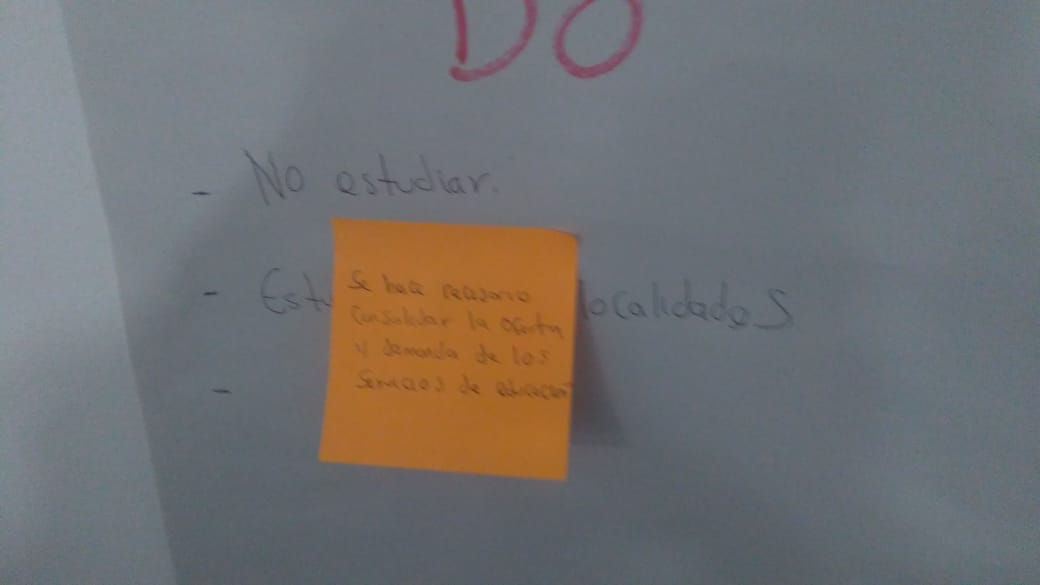 DO
- No estudiar.
- Est localidades
-
Se hace necesario
consolidar la oferta
y demanda de los
servicios de educación